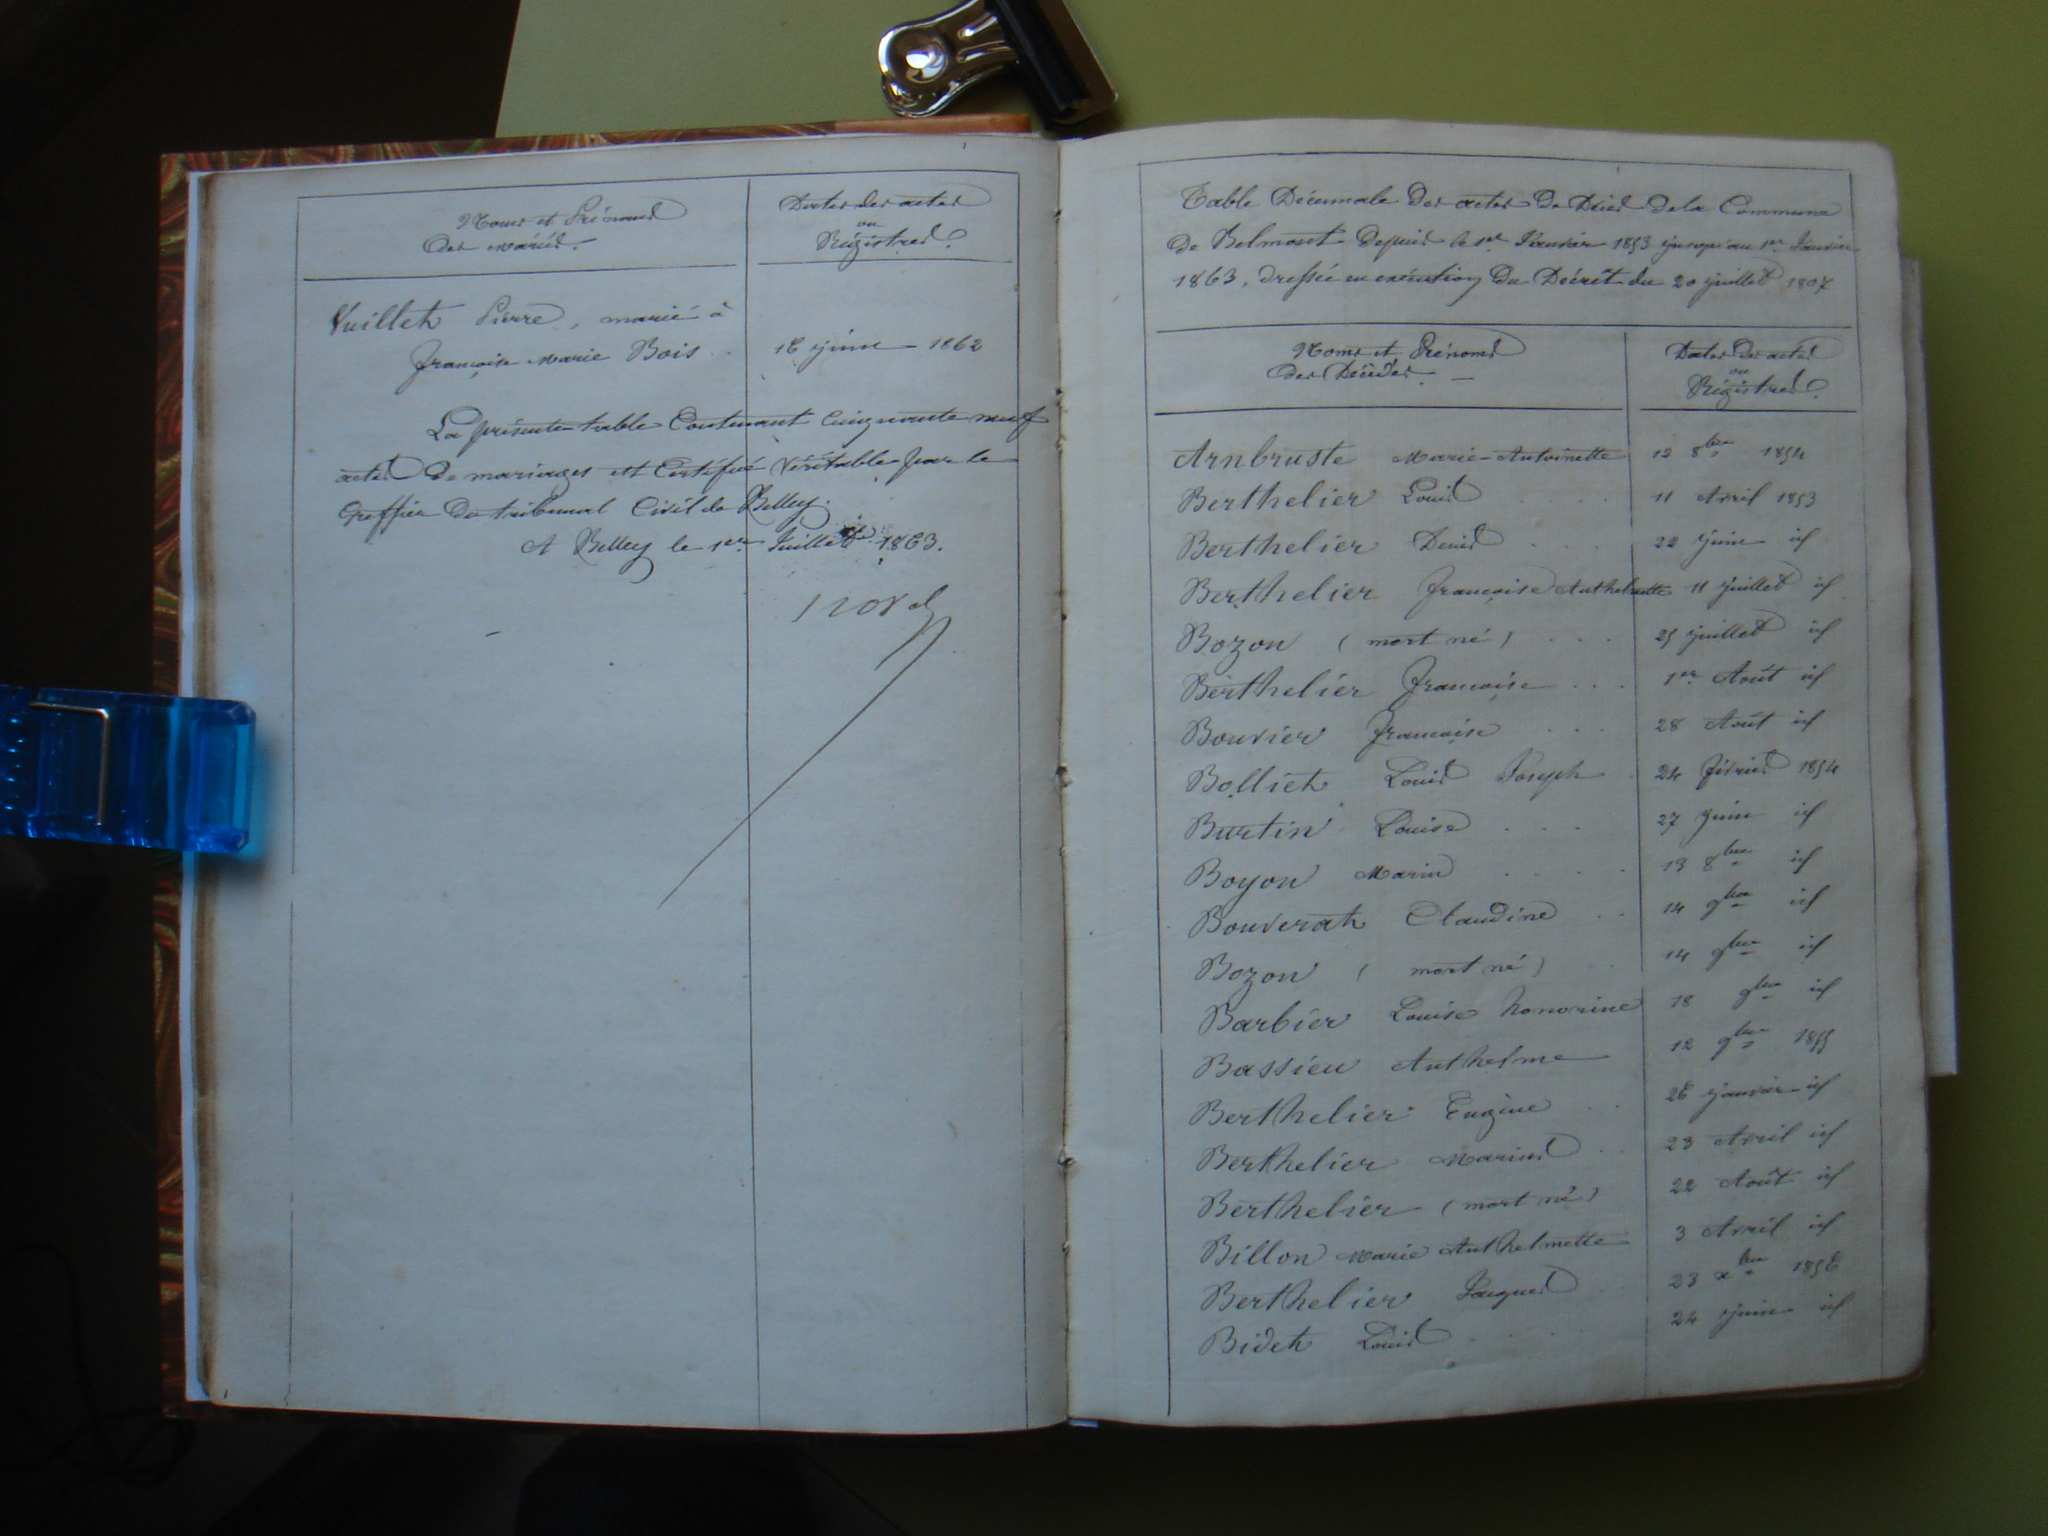 Noms et Prénoms
des mariés.
Dates des actes
ou
Régistres.
Vuillet Pierre, marié à
françoise Marie Bois 16 juin 1862
La présente table Contenant Cinquante neuf
actes de mariages est Certifiée Véritable par le
Greffier du tribunal Civil de Belley.
A Belley le 1er Juillet 1863.
Table Décennale des actes de Décès de la Commune
de Belmont depuis le 1er Janvier 1853 jusqu'au 1er Janvier
1863, dressée en exécution du Décrêt du 20 juillet 1807
Noms et Prénoms
des Décédés.
Dates des actes
ou
Régistres.
Arnbruste Marie-Antoinette 12 8bre 1854
Berthelier Louis 11 Avril 1853
Berthelier Denis 22 juin id
Berthelier françoise Anthelmette 11 juillet id
Bozon (mort né) 25 juillet id
Berthelier françoise 1er Août id
Bouvier françoise 28 Août id
Bolliet Louis Joseph 24 février 1854
Burtin Louise 27 juin id
Boyon Marin 13 8bre id
Bouverat Claudine 14 9bre id
Bozon (mort né) 14 9bre id
Barbier Louise honorine 18 9bre id
Bassieu Anthelme 12 9bre 1855
Berthelier Eugène 26 janvier id
Berthelier Marius 23 Avril id
Berthelier (mort né) 22 Août id
Billon Marie Anthelmette 3 Avril id
Berthelier Jacques 23 xbre 1856
Bidet Louis 24 juin id